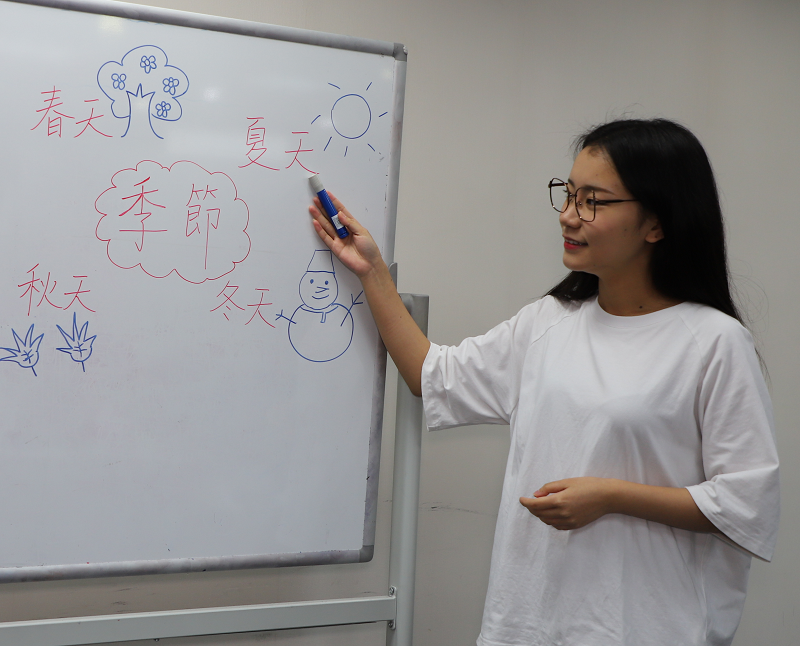 春天
夏天
季節
秋天
冬天